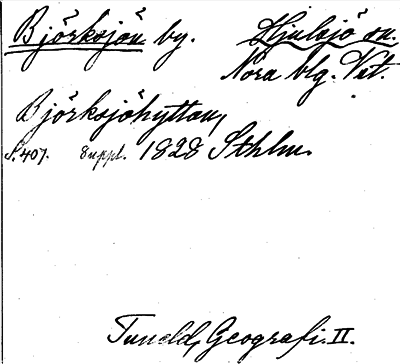 Björksjön by. Hjulsjö sn.
Nora blg. Vst.
Björksjöhyttan,
S. 407. Suppl. 1828 Sthlm.
Tuneld, Geografi. II.